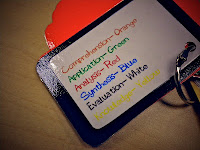 Comprehension- Orange
Application- Green
Analysis- Red
Synthesis- Blue
Evaluation- White
Knowledge- Yellow